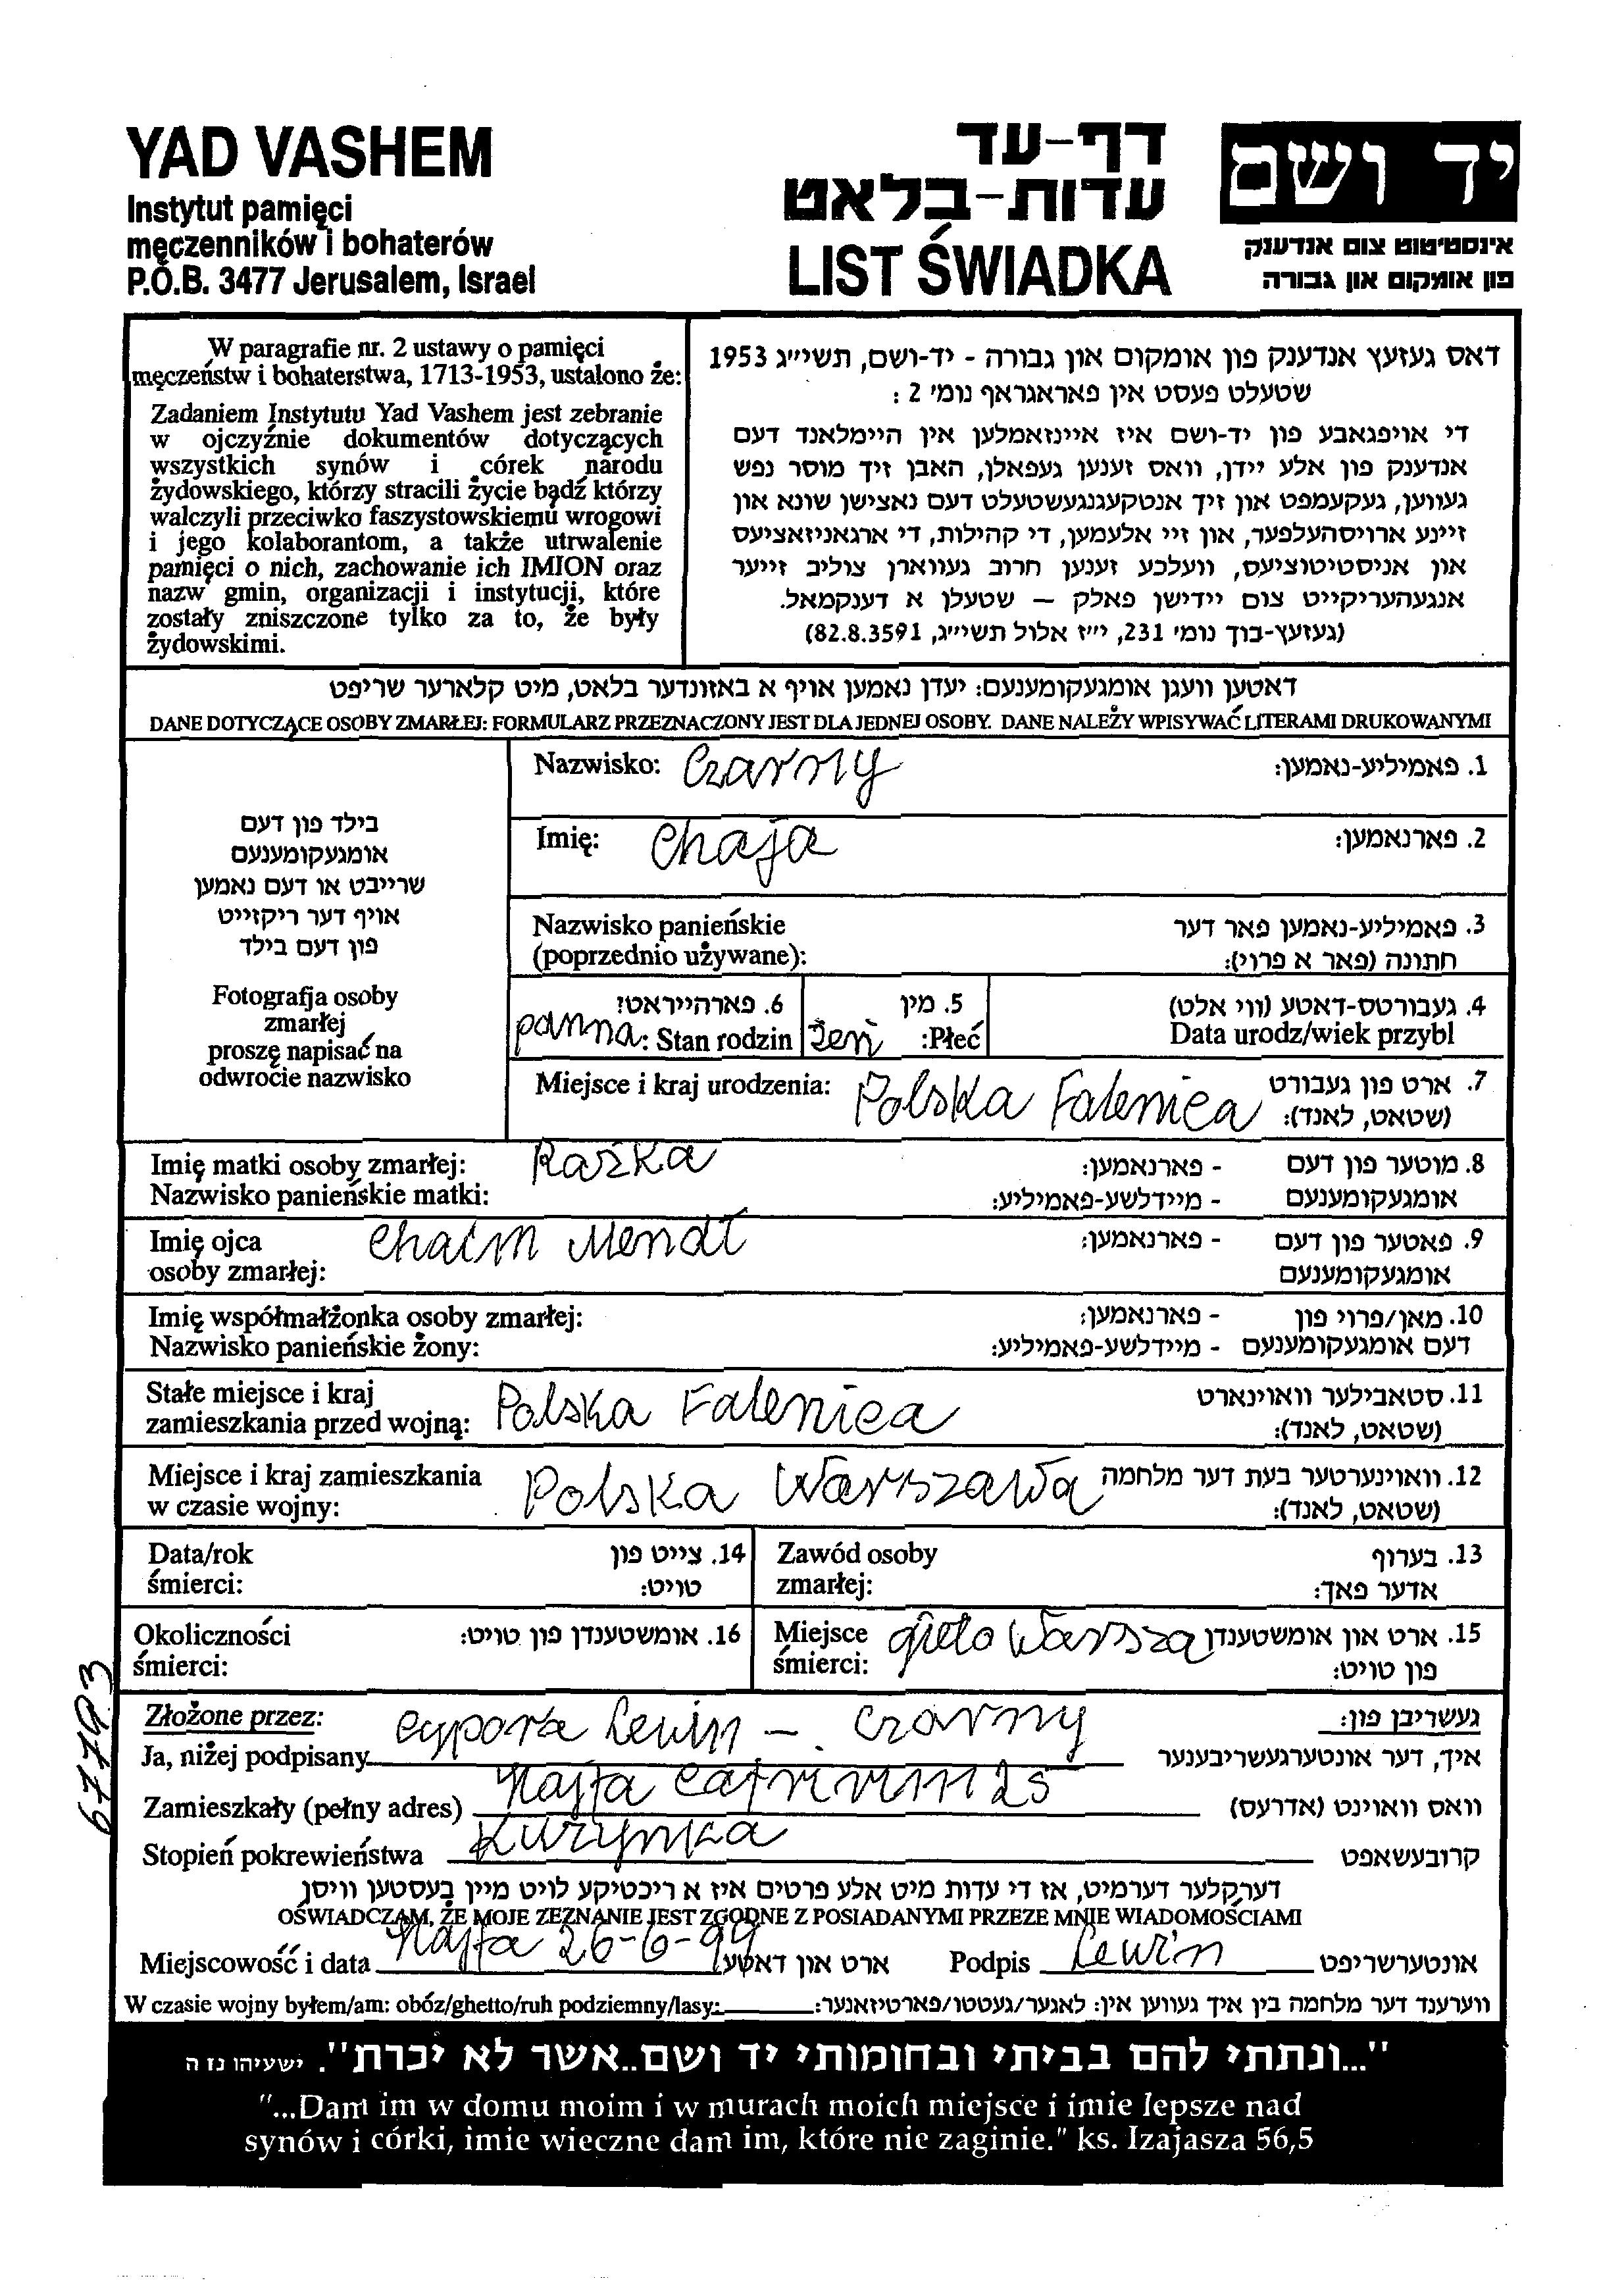 YAD VASHEM
Instytut pamięci
męczenników i bohaterów
P.O.B. 3477 Jerusalem, Israel
דף-עד
עדות-בלאט
LIST ŚWIADKA
יד ושם
אינסטיטוט צום אנדענק
פון אומקום און גבורה
W paragrafie nr. 2 ustawy o pamięci
męczeństw i bohaterstwa, 1713-1953, ustalono że:
Zadaniem Instytutu Yad Vashem jest zebranie
w ojczyźnie dokumentów dotyczących
wszystkich synów i córek narodu
żydowskiego, którzy stracili życie bądź którzy
walczyli przeciwko faszystowskiemu wrogowi
i jego kolaborantom, a także utrwalenie
pamięci o nich, zachowanie ich IMION oraz
nazw gmin, organizacji i instytucji, które
zostały zniszczone tylko za to, że były
żydowskimi.
דאס געזעץ אנדענק פון אומקום און גבורה - יד-ושם, תשי״ג 1953
שטעלט פעסט אין פאראגראף נומ׳ 2 :
די אויפגאבע פון יד-ושם איז איינזאמלען אין היימלאנד דעם
אנדענק פון אלע יידן, וואס זענען געפאלן, האבן זיך מוסר נפש
געווען, געקעמפט און זיך אנטקעגנגעשטעלט דעם נאצישן שונא און
זיינע ארויסהעלפער, און זיי אלעמען, די קהילות, די ארגאניזאציעס
און אניסטיטוציעס, וועלכע זענען חרוב געווארן צוליב זייער
אנגעהעריקייט צום יידישן פאלק – שטעלן א דענקמאל.
(געזעץ-בוך נומ׳ 231, י״ז אלול תשי״ג, 82.8.3591)
דאטען וועגן אומגעקומענעם: יעדן נאמען אויף א באזונדער בלאט, מיט קלארער שריפט
DANE DOTYCZĄCE OSOBY ZMARŁEJ: FORMULARZ PRZEZNACZONY JEST DLA JEDNEJ OSOBY. DANE NALEŻY WPISYWAĆ LITERAMI DRUKOWANYMI
בילד פון דעם
אומגעקומענעם
שרייבט או דעם נאמען
אויף דער ריקזייט
פון דעם בילד
Fotografja osoby
zmarłej
proszę napisać na
odwrocie nazwisko
Nazwisko: Czarny 1. פאמיליע-נאמען:
Imię: Chaja 2. פארנאמען:
Nazwisko panieńskie 3. פאמיליע-נאמען פאר דער
(poprzednio używane): חתונה (פאר א פרוי):
6. פארהייראט? 5. מין 4. געבורטס-דאטע (ווי אלט)
panna: Stan rodzin żeń :Płeć Data urodz/wiek przybl
Miejsce i kraj urodzenia: Polska Falenica 7. ארט פון געבורט
(שטאט, לאנד):
Imię matki osoby zmarłej: Raśka - פארנאמען: 8. מוטער פון דעם
Nazwisko panieńskie matki: - מיידלשע-פאמיליע: אומגעקומענעם
Imię ojca Chaim Mendl - פארנאמען: 9. פאטער פון דעם
osoby zmarłej: אומגעקומענעם
Imię współmałżonka osoby zmarłej: - פארנאמען: 10. מאן/פרוי פון
Nazwisko panieńskie żony: - מיידלשע-פאמיליע: דעם אומגעקומענעם
Stałe miejsce i kraj 11. סטאבילער וואוינארט
zamieszkania przed wojną: Polska Falenica (שטאט, לאנד):
Miejsce i kraj zamieszkania 12. וואוינערטער בעת דער מלחמה
w czasie wojny: Polska Warszawa (שטאט, לאנד):
Data/rok 14. צייט פון Zawód osoby 13. בערוף
śmierci: טויט: zmarłej: אדער פאך:
Okoliczności 16. אומשטענדן פון טויט: Miejsce gieto Warsza 15. ארט און אומשטענדן
śmierci: śmierci: פון טויט:
67793
Złożone przez: Cypora Lewin - Czarny געשריבן פון:
Ja, niżej podpisany איך, דער אונטערגעשריבענער
Zamieszkały (pełny adres) Hajfa 25 וואס וואוינט (אדרעס)
Stopień pokrewieństwa Kuzynka קרובעשאפט
דערקלער דערמיט, אז די עדות מיט אלע פרטים איז א ריכטיקע לויט מיין בעסטען וויסן
OŚWIADCZAM, ŻE MOJE ZEZNANIE JEST ZGODNE Z POSIADANYMI PRZEZE MNIE WIADOMOŚCIAMI
Miejscowość i data Hajfa 26-6-99 ארט און דאטע Podpis Lewin אונטערשריפט
W czasie wojny byłem/am: obóz/ghetto/ruh podziemny/lasy: ווערענד דער מלחמה בין איך געווען אין: לאגער/געטטו/פארטיזאנער:
"...ונתתי להם בביתי ובחומותי יד ושם..אשר לא יכרת". ישעיהו נז ה
"...Dam im w domu moim i w murach moich miejsce i imie lepsze nad
synów i córki, imie wieczne dam im, które nie zaginie." ks. Izajasza 56,5